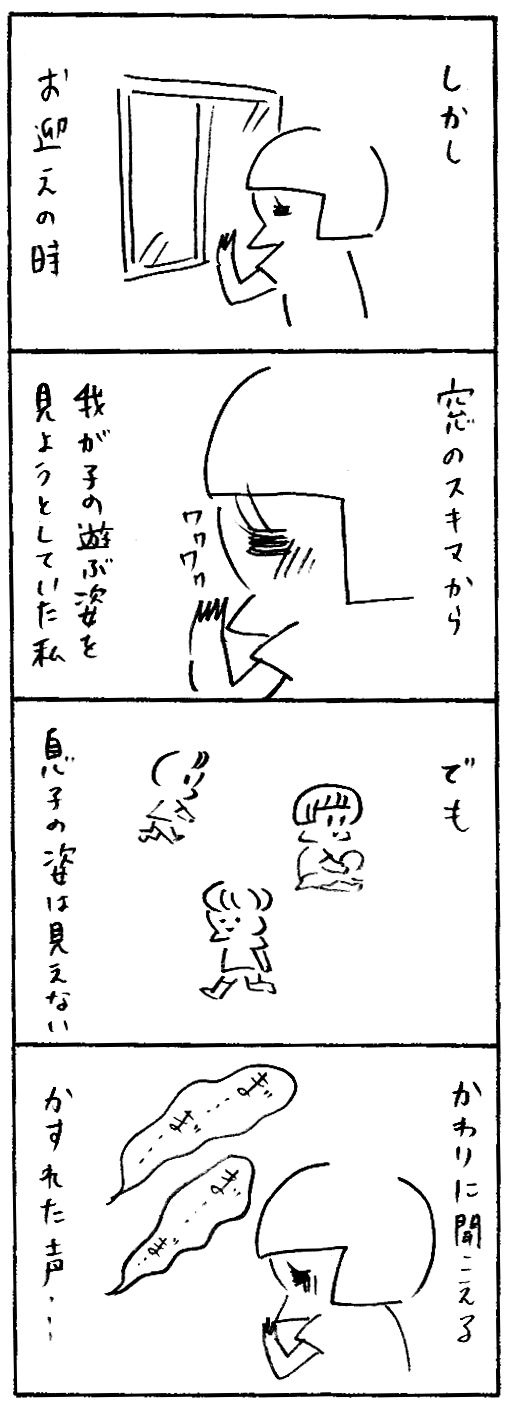 しかし
お迎えの時
窓のスキマから
ワクワク
我が子の遊ぶ姿を
見ようとしていた私
でも
息子の姿は見えない
かわりに聞こえる
ま゛…ま゛…
ま゛…ま゛…
かすれた声…